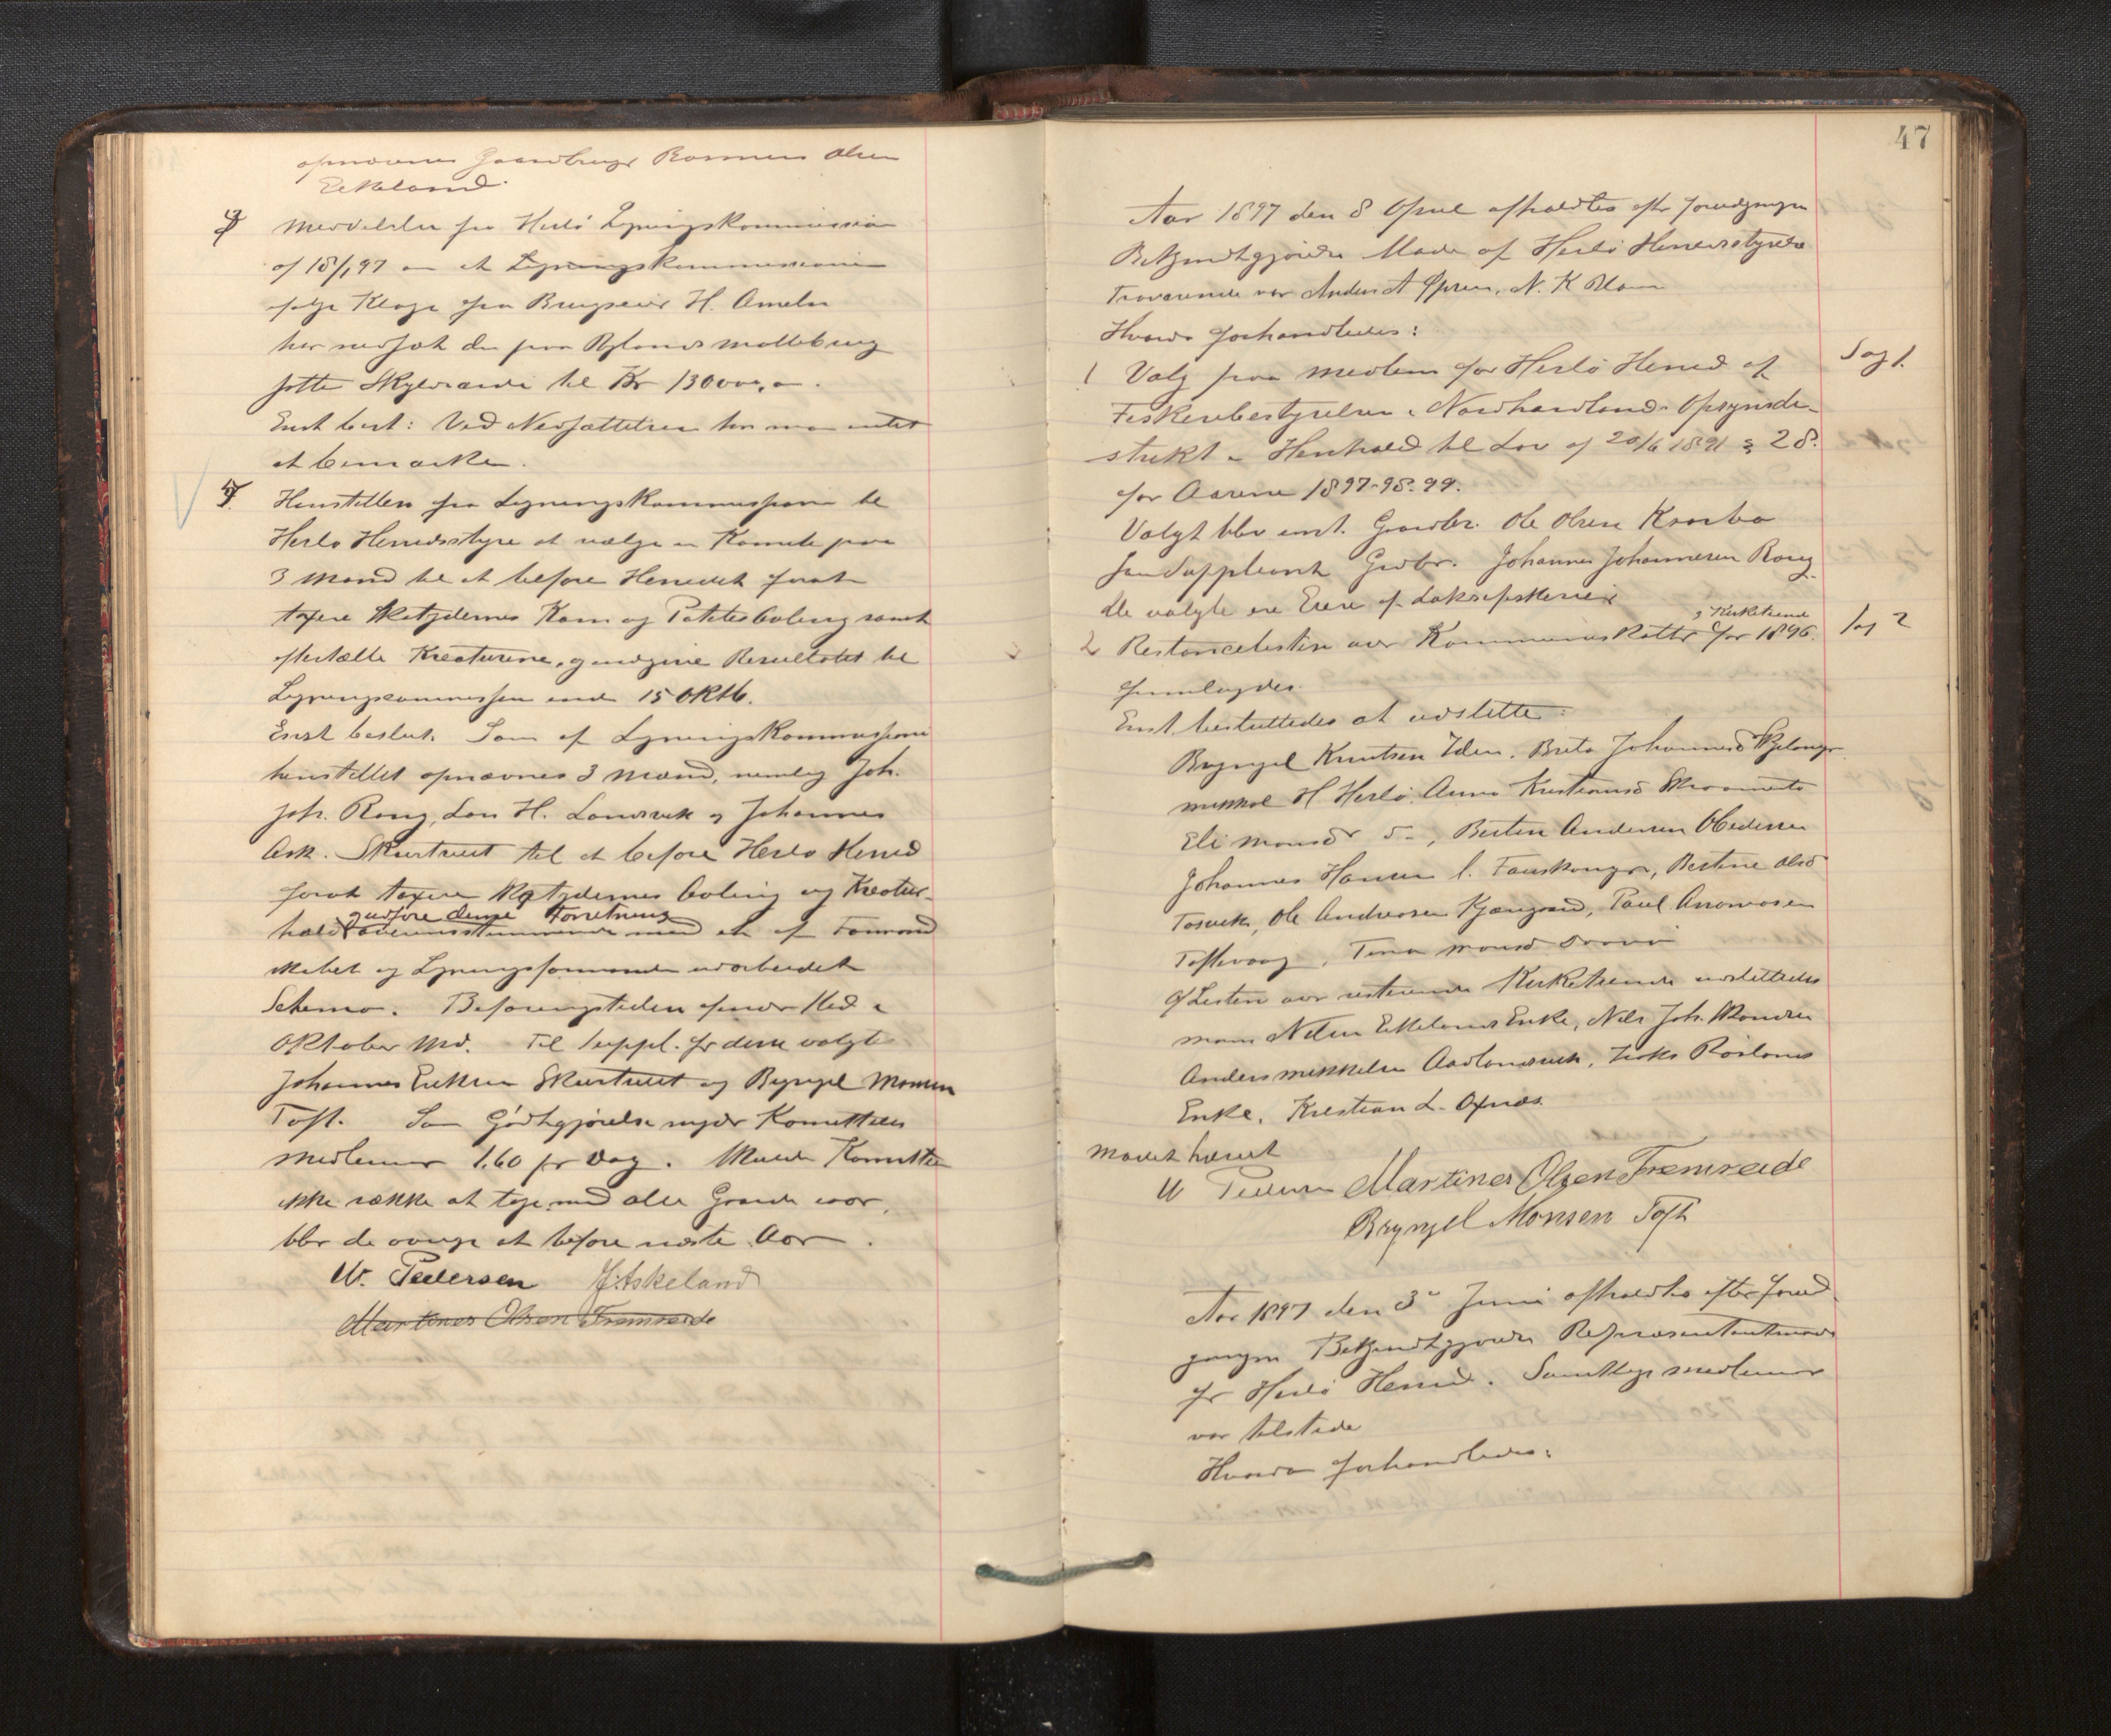 opnævnes Gaardbruger Rasmus Olsen
Eikeland.
3 Meddelelse fra Herlö Ligningskommission
af 18/1 97 om at Ligningskommissionen
ifølge Klage fra Brugseier H. Ameln
har nedsat den paa Rylands Møllebrug
satte Skyldværdi til Kr 130000,00.
Enst best: Ved Nedsættelsen har man intet
at bemærke.
4. Henstillen fra Ligningskommissionen til
Herlø Herredsstyre at vælge en Komite paa
3 Mand til at befare Herredet forat
taxere Skatydernes Korn og Potetesavling samt
eftertælle Kreaturene, og indgive Resultatet til
Ligningskommissjen inden 15 Oktb.
Enst beslut. Som af Ligningskommissjonen
henstillet opnævnes 3 Mænd, nemlig Joh.
Joh. Rong, Lars H. Landsvik og Johannes
Ask. Skurtveit til at befare Herlø Herred
forat taxere Skatydernes Avling og Kreatur-
og udføre denne Forretning
hold overensstemmende med et af Formand
skabet og Ligningsformanden udarbeidet
Schema. Befaringstiden finder Sted i
Oktober Md. Til Suppl. for disse valgte
Johannes Eriksen Skurtveit og Brynjel Monsen
Toft. Som Godtgjørelse nyder Komitteens
Medlemer 1.60 pr Dag. Skulde Komitteen
ikke række at tage med alle Gaarde iaar,
blir de øvrige at befare næste Aar.
W. Pedersen J. Askeland
Martines Olsen Fremreide
47
Aar 1897 den 8 April afholdtes efter foregaaende
Bekjendtgjørelse Møde af Herlö Herredsstyrelse
Fraværende var Anders A Ypsen, N. K Blom
Hvorda forhandledes:
1 Valg paa Medlem for Herlö Herred af Sag 1.
Fiskeribestyrelsen i Nordhordland Opsynsdi-
strikt i Henhold til Lov af 20/6 1891 § 28.
for Aarene 1897-98-99.
Valgt blev enst. Gaardbr. Ole Olsen Krosbø
som Suppleant Grdbr. Johannes Johannesen Rong
De valgte ere Eiere af Laksefiskerier
og Kirketiende
2 Restancelisten over Kommuneskatter for 1896. Sag 2
fremlagdes.
Enst. besluttedes at udslette:
Brynjel Knutsen Iden, Brita Johannesd Kjelanger
Mikkal H Herlö, Anna Kristiansd Skraamestø
Eli Monsdr do, Besten Andersen Obedissen
Johannes Hansen l. Fauskanger, Bertine Olsd
Tosvik, Ole Andreasen Kjærgaard, Paul Andreasen
Toftevaag, Tina Monsd
Af Listen over resterende Kirketiende udslettedes
Mons Nilsen Eikelands Enke, Nils Joh. Mondsen
Anders Mikkelsen Aadlandsvik, Jaks Røslands
Enke, Kristian L. Oxnæs.
Mødet hævet
W Pedersen Martines Olsen Fremreide
Brynjel Monsen Toft
Aar 1897 den 3de Juni afholdtes efter fored
gangen Bekjendtgjørelse Repræsentantmøde
for Herlö Herred. Samtlige Medlemer
var tilstede
Hvorda forhandledes: